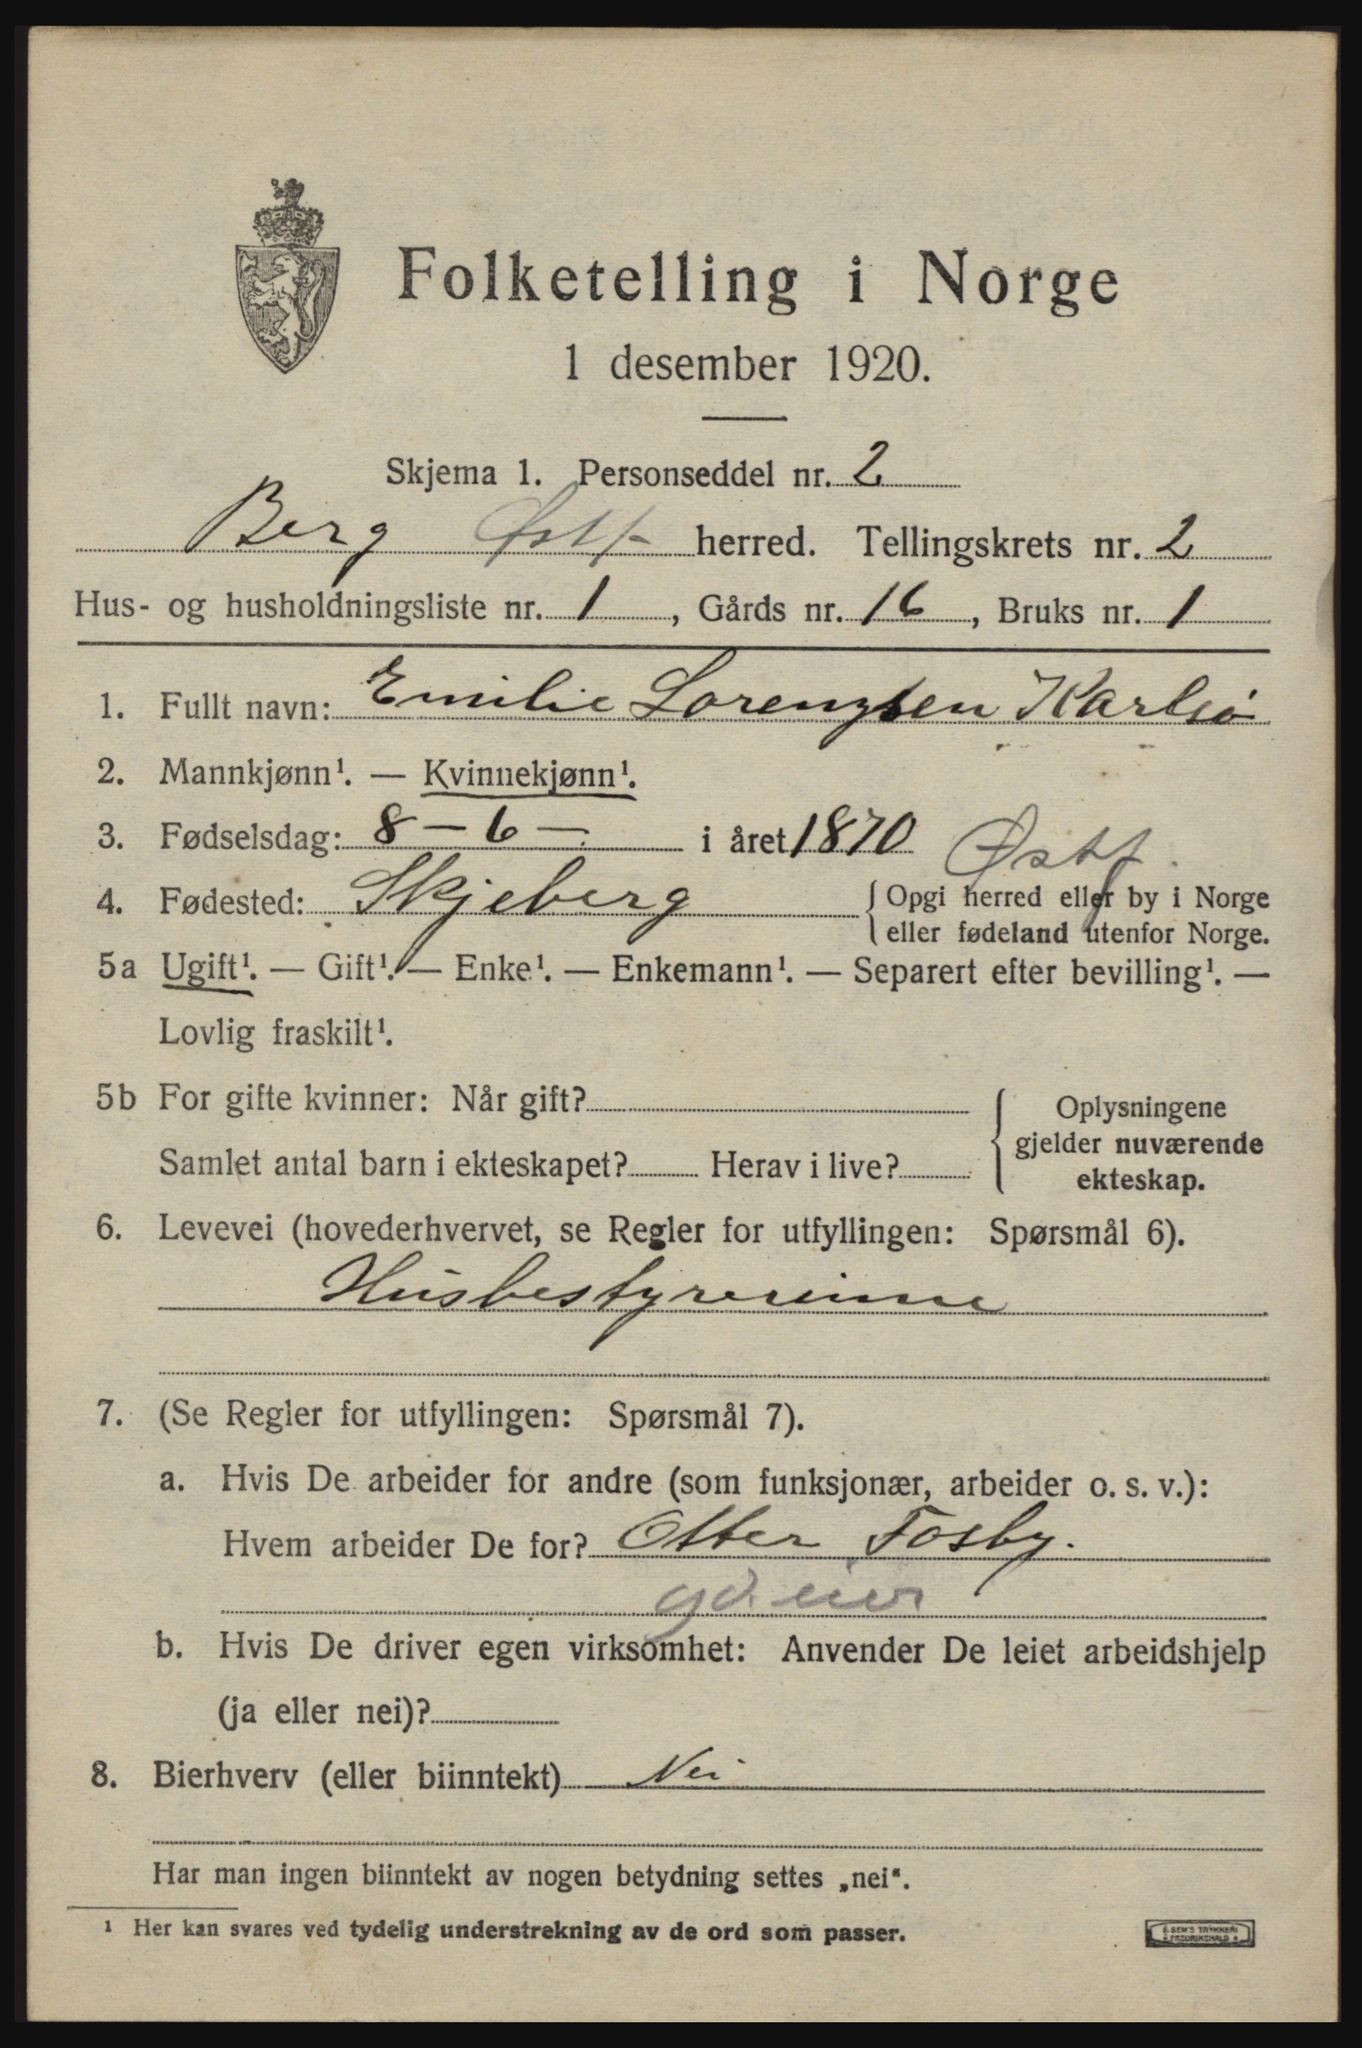 Folketelling i Norge
1 desember 1920.
Skjema 1. Personseddel nr. 2
Berg Østf herred. Tellingskrets nr. 2
Hus- og husholdningsliste nr. 1, Gårds nr. 16, Bruks nr. 1
1. Fullt navn: Emilie Lorentsen Karlsø
2. Mannkjønn¹. — Kvinnekjønn¹.
3. Fødselsdag: 8 – 6 – i året 1870 Østf.
4. Fødested: Skjeberg { Opgi herred eller by i Norge
eller fødeland utenfor Norge.
5a Ugift¹. — Gift¹. — Enke¹. — Enkemann¹. — Separert efter bevilling¹. —
Lovlig fraskilt¹.
5b For gifte kvinner: Når gift?
Samlet antal barn i ekteskapet? Herav i live?
{ Oplysningene
gjelder nuværende
ekteskap.
6. Levevei (hovederhvervet, se Regler for utfyllingen: Spørsmål 6).
Husbestyrerinne
7. (Se Regler for utfyllingen: Spørsmål 7).
a. Hvis De arbeider for andre (som funksjonær, arbeider o. s. v.):
Hvem arbeider De for? Otter Fosby.
gd.eier
b. Hvis De driver egen virksomhet: Anvender De leiet arbeidshjelp
(ja eller nei)?
8. Bierhverv (eller biinntekt) Nei
Har man ingen biinntekt av nogen betydning settes „nei“.
¹ Her kan svares ved tydelig understrekning av de ord som passer.
E. SEM'S TRYKKERI
FREDRIKSHALD